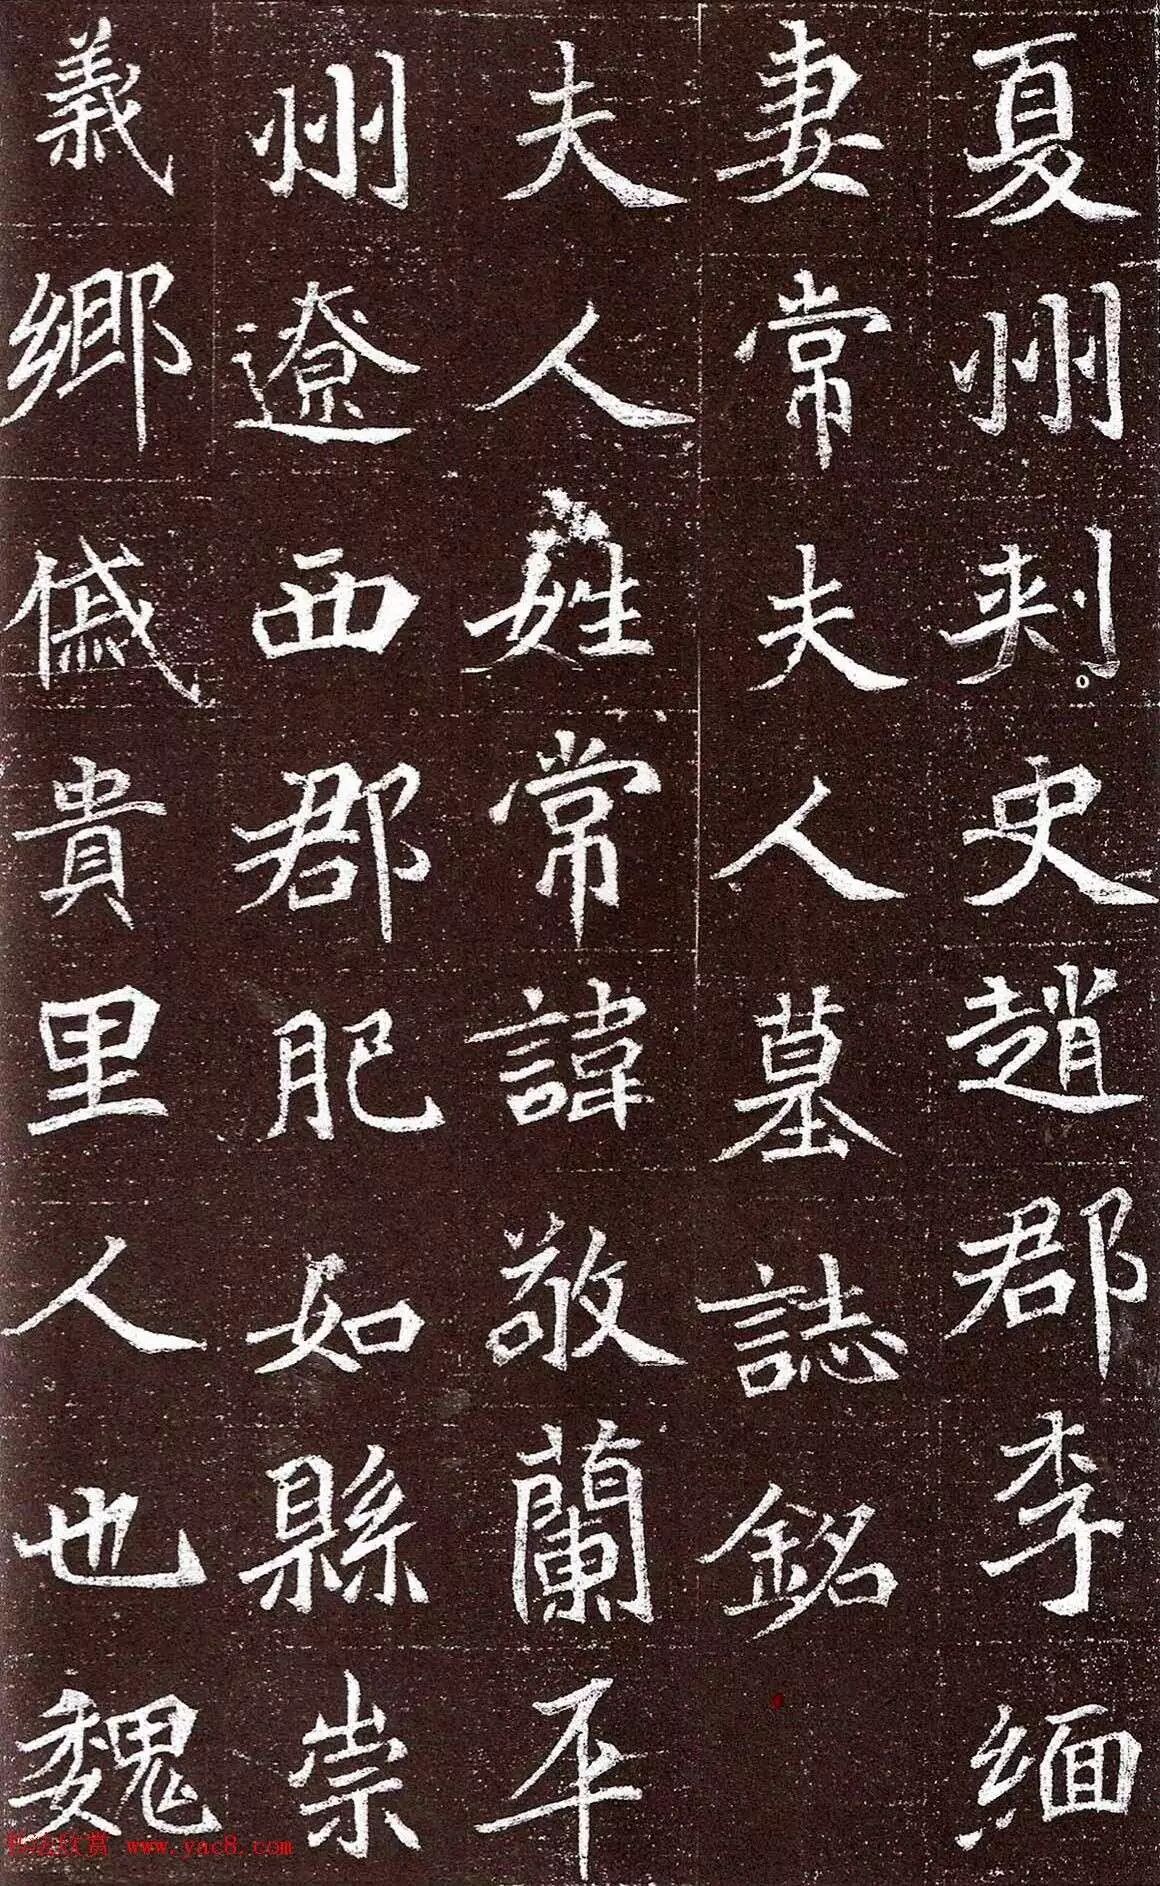 夏州刾史趙郡李緬
妻常夫人墓誌銘
夫人姓常諱敬蘭平
州遼西郡肥如縣崇
義鄉傶貴里人也魏
书法欣赏 www.yac8.com